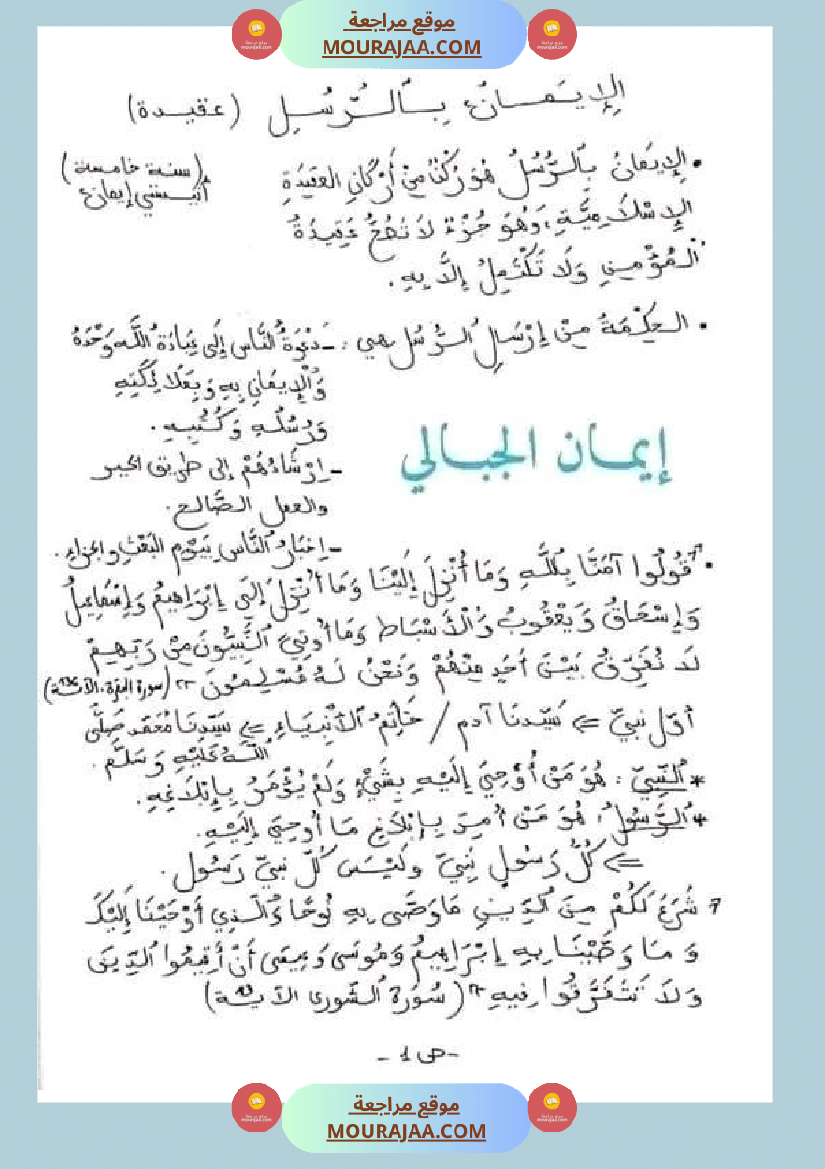 موقع مراجعة
MOURAJAA.COM
الإِيـمـانُ بِـالـرُّسُلِ (عقيدة)
• الإِيمَانُ بِالرُّسُلِ هُوَ رُكْنٌ مِنْ أَرْكَانِ العَقِيدَةِ (سنة خامسة)
الإِسْلَامِيَّةِ، وَهُوَ جُزْءٌ لَا تَصِحُّ عَقِيدَةُ أنيستي إيمان
الْمُؤْمِنِ وَلَا تَكْتَمِلُ إِلَّا بِهِ.
• الحِكْمَةُ مِنْ إِرْسَالِ الرُّسُلِ هي : - دَعْوَةُ النَّاسِ إِلَى عِبَادَةِ اللَّهِ وَحْدَهُ
وَالْإِيمَانِ بِهِ وَبِمَلَائِكَتِهِ
وَرُسُلِهِ وَكُتُبِهِ.
- إِرْشَادُهُمْ إلى طريق الخير
والعمل الصَّالح.
إيمان الجبالي
- إخبارُ النَّاسِ بِيَوْمِ البَعْثِ والجزاءِ.
• "قُولُوا آمَنَّا بِاللَّهِ وَمَا أُنْزِلَ إِلَيْنَا وَمَا أُنْزِلَ إِلَى إِبْرَاهِيمَ وَإِسْمَاعِيلَ
وَإِسْحَاقَ وَيَعْقُوبَ وَالْأَسْبَاطِ وَمَا أُوتِيَ النَّبِيُّونَ مِنْ رَبِّهِمْ
لَا نُفَرِّقُ بَيْنَ أَحَدٍ مِنْهُمْ وَنَحْنُ لَهُ مُسْلِمُونَ" (سورة البقرة، الآية 136)
أوّل نبيّ ⇐ سَيِّدنَا آدم / خَاتِمُ الْأَنْبِيَاءِ ⇐ سَيِّدنَا مُحَمَّد صَلَّى
اللَّهُ عَلَيْهِ وَسَلَّم.
* النَّبِيّ : هُوَ مَنْ أُوحِيَ إِلَيْهِ بِشَيْءٍ وَلَمْ يُؤْمَرْ بِإِبْلَاغِهِ.
* الرَّسُولُ : هُوَ مَنْ أُمِرَ بِإِبْلَاغِ مَا أُوحِيَ إِلَيْهِ.
⇐ كُلُّ رَسُولٍ نَبِيّ وَلَيْسَ كُلّ نَبِيّ رَسُول.
" شَرَعَ لَكُمْ مِنَ الدِّينِ مَا وَصَّى بِهِ نُوحًا وَالَّذِي أَوْحَيْنَا إِلَيْكَ
وَمَا وَصَّيْنَا بِهِ إِبْرَاهِيمَ وَمُوسَى وَعِيسَى أَنْ أَقِيمُوا الدِّينَ
وَلَا تَتَفَرَّقُوا فِيهِ" (سُورَة الشّورى الآية 13)
- ص 1 -
موقع مراجعة
MOURAJAA.COM